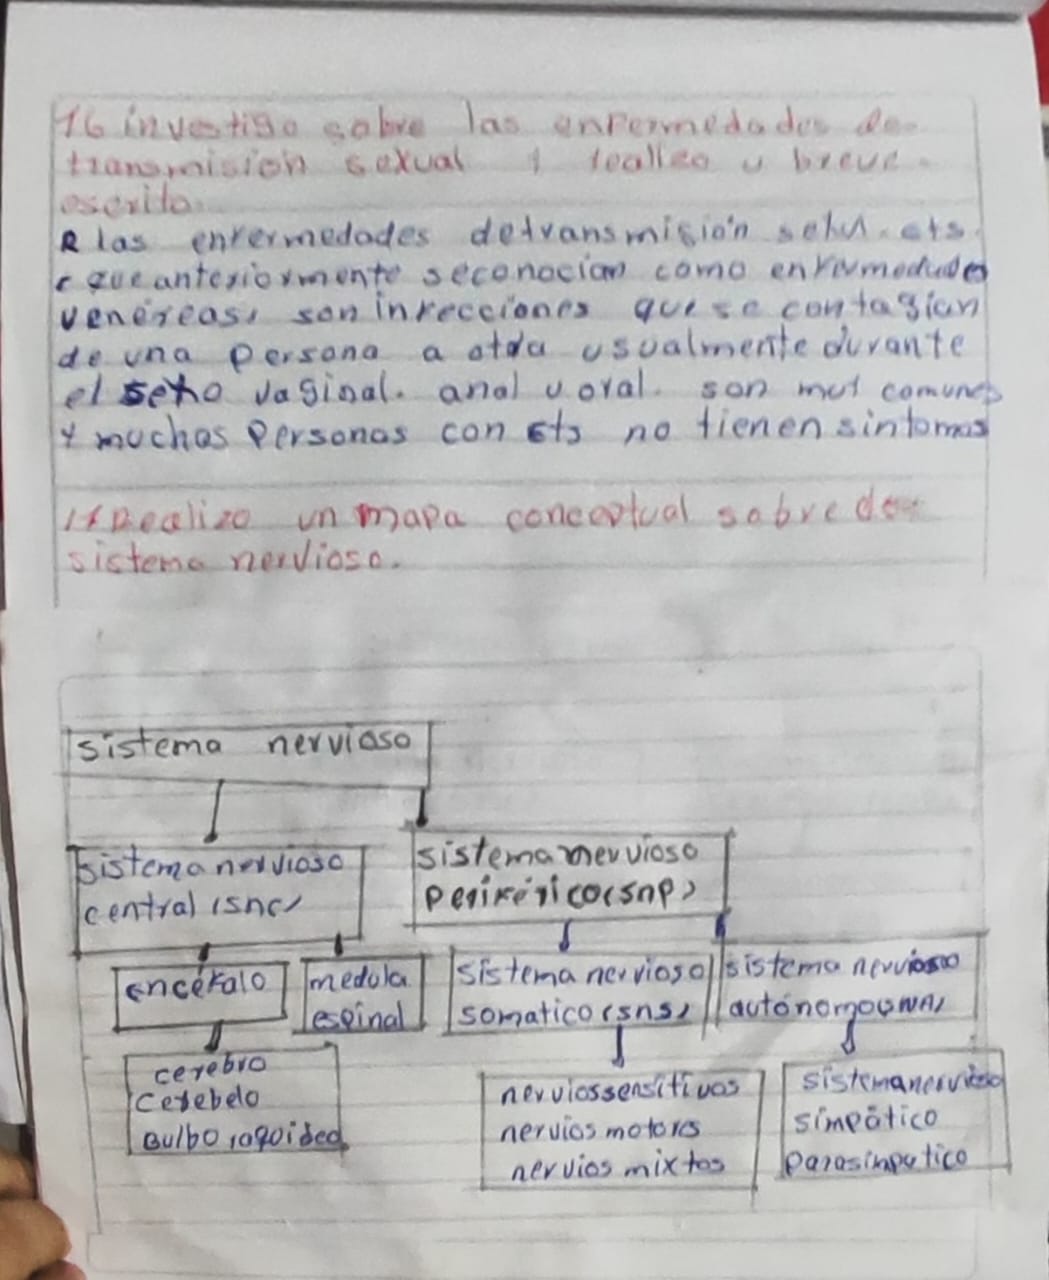 16 investigo sobre las enfermedades de
transmision sexual y realizo u breve
escrito.
R las enfermedades de transmisión ets.
que anteriormente se conocian como enfermedades
venéreas, son infecciones que se contagian
de una persona a otra usualmente durante
el sexo vaginal. anal u oral. son muy comunes
y muchas personas con ets no tienen sintomas
17 Realizo un mapa conceptual sobre de
sistema nervioso.
sistema nervioso
sistema nervioso
central (snc)
sistema nervioso
periférico (snp)
encéfalo
medula
espinal
sistema nervioso
somatico (sns)
sistema nervioso
autónomo (SNA)
cerebro
cerebelo
Bulbo raquideo
nervios sensitivos
nervios motores
nervios mixtos
sistema nervioso
simpático
parasimpatico